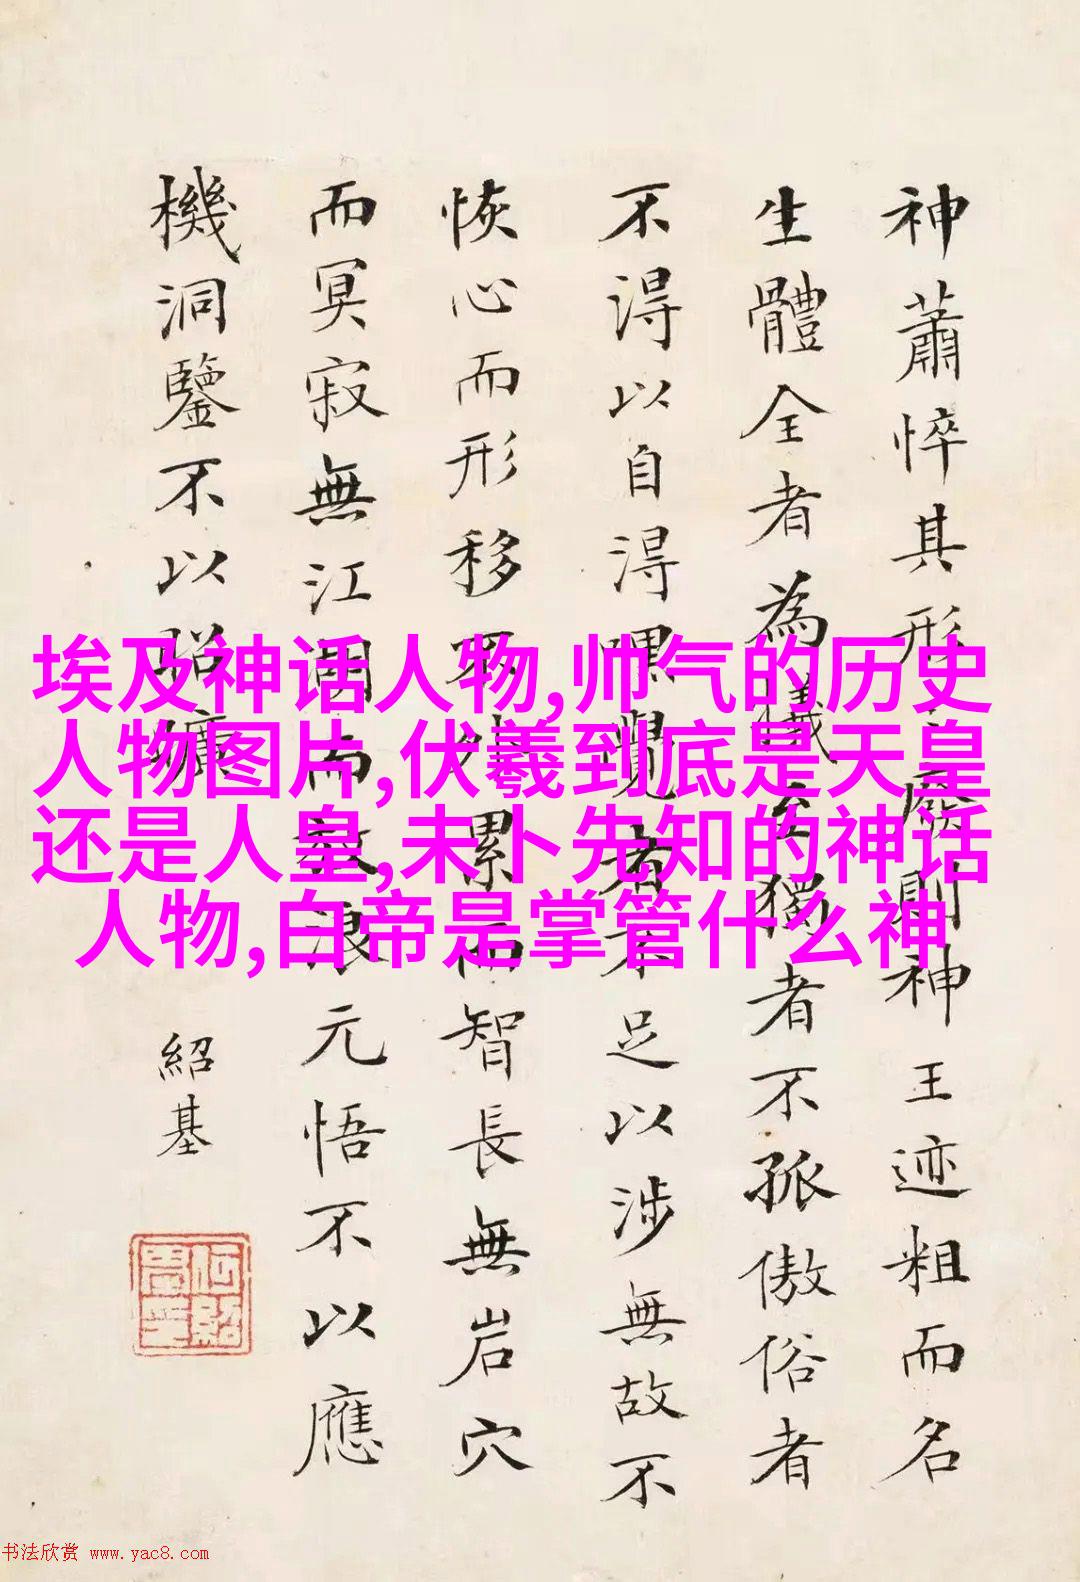 神蕭悴其形廢則神王迹粗而名
生體全者為儀至獨者不孤傲俗者
不淂以自淂嘿覺者不足以涉無故不
恢心而形移外累而智長無岩穴
而冥寂無江湖而放浪元悟不以應
機洞鑒不以昭曠
紹基
何紹基印
埃及神话人物,帅气的历史
人物图片,伏羲到底是天皇
还是人皇,未卜先知的神话
人物,白帝是掌管什么神
书法欣赏 www.yac8.com